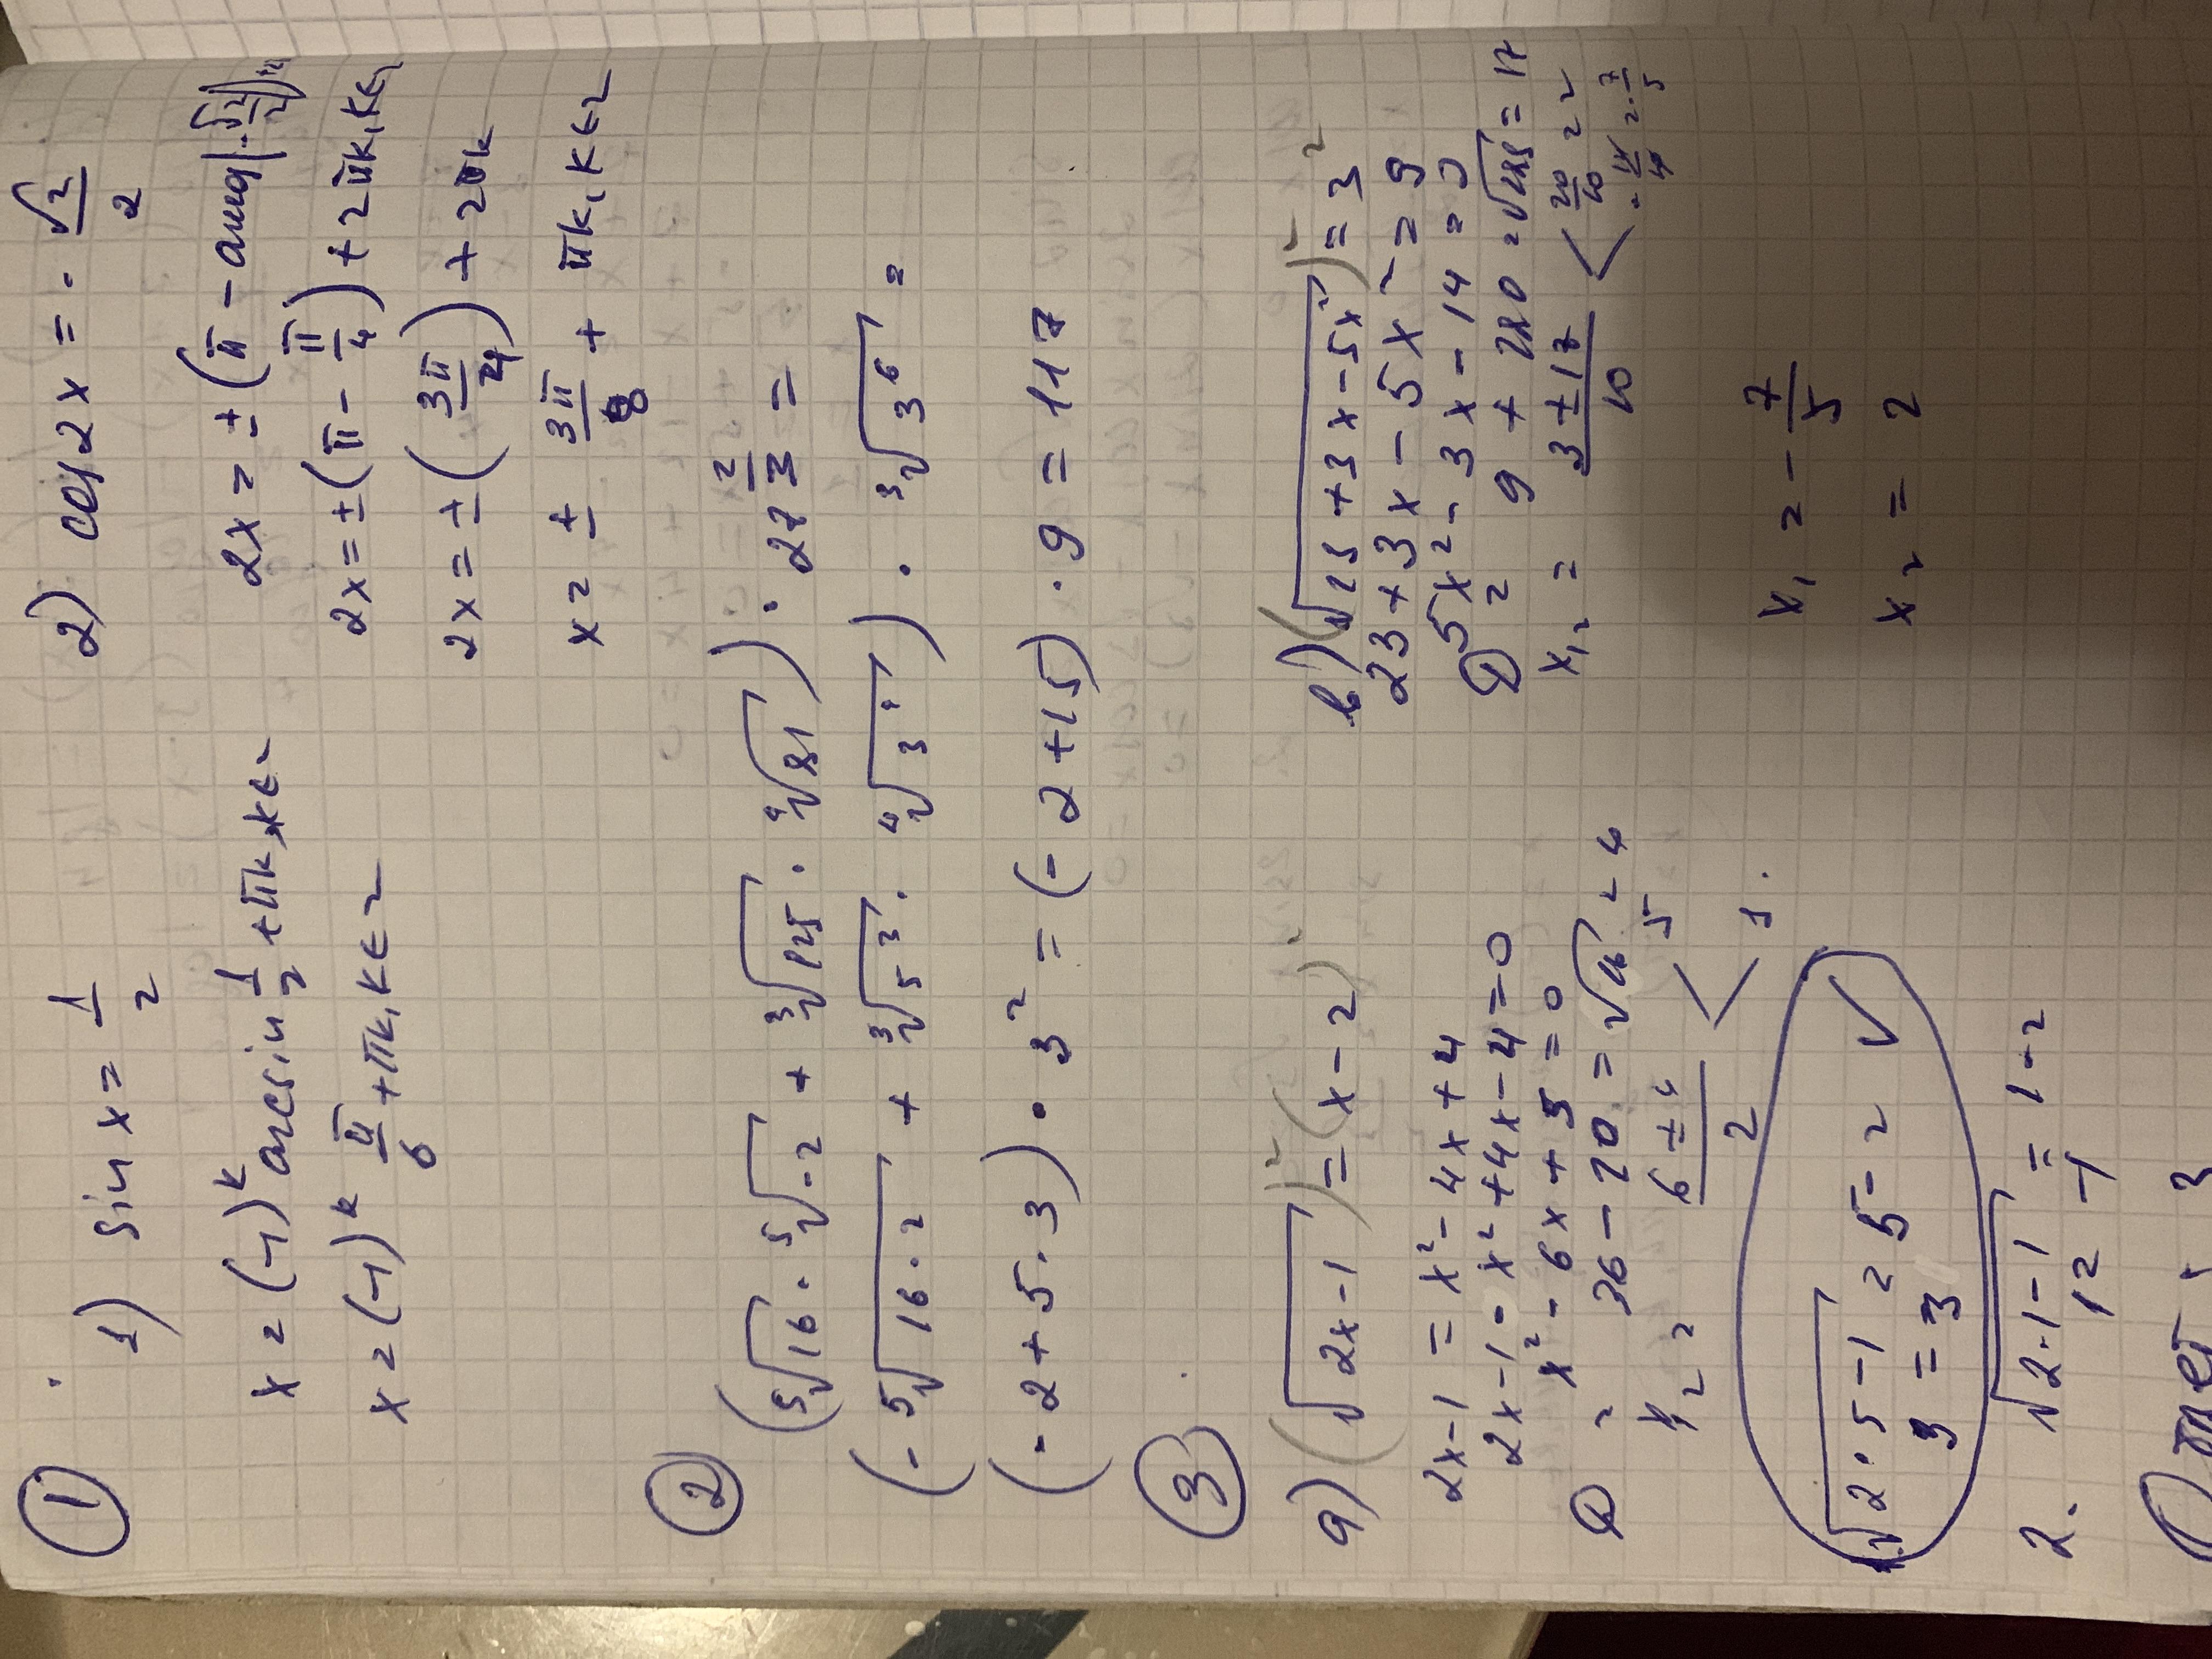 1
1) sin x = 1/2
x = (-1)^k arcsin 1/2 + πk, k∈Z
x = (-1)^k π/6 + πk, k∈Z
2) cos 2x = - √2/2
2x = ± (π -
2x = ± (π - π/4) + 2πk, k∈
2x = ± (3π/4) + 2πk
x = ± 3π/8 + πk, k∈Z
2
(⁵√16 · ⁵√-2 + ³√125 · ⁴√81) · 27^(2/3) =
(- ⁵√16·2 + ³√5³ · ⁴√3⁴) · ³√3⁶ =
(-2 + 5·3) · 3² = (-2 + 15) · 9 = 117
3
a) (√2x-1)² = (x-2)²
2x-1 = x² - 4x + 4
2x - 1 - x² + 4x - 4 = 0
x² - 6x + 5 = 0
D = 36 - 20 = √16 = 4
x₁,₂ = (6 ± 4)/2 < 5
1
√2·5-1 = 5-2 ✓
3 = 3
2. √2·1-1 = 1-2
1 = -1
b) (√23+3x-5x²)² = 3²
23 + 3x - 5x² = 9
5x² - 3x - 14 = 0
D = 9 + 280 = √289 = 17
x₁,₂ = (3 ± 17)/10 < 20/10 = 2
x₁ = - 7/5
x₂ = 2